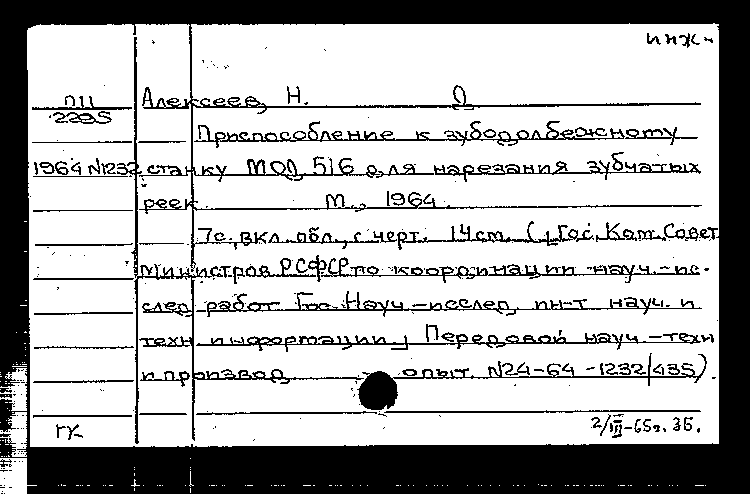 инж-
П11
2295
Алексеев, Н.
Приспособление к зубодолбежному
1964 N1232 станку МОД 516 для нарезания зубчатых
реек М., 1964.
7с., вкл. обл., с черт. 14см. (Гос. Ком. Совет
Министров РСФСР по координации науч.-ис-
след работ Гос Науч.-исслед. ин-т науч. и
техн информации, Передовой науч.-техн
и производ опыт. N24-64-1232/435).
ГК 2/III-65г. 35.